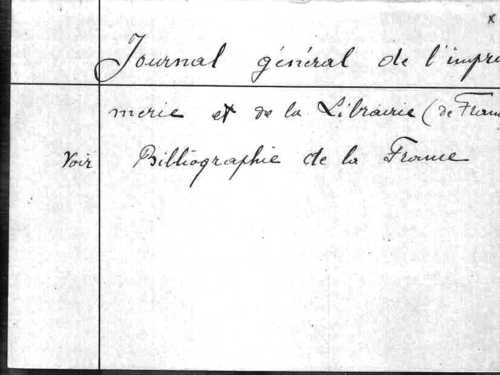 x
Journal général de l'impri
merie et de la Librairie (de Fran
Voir Bibliographie de la France